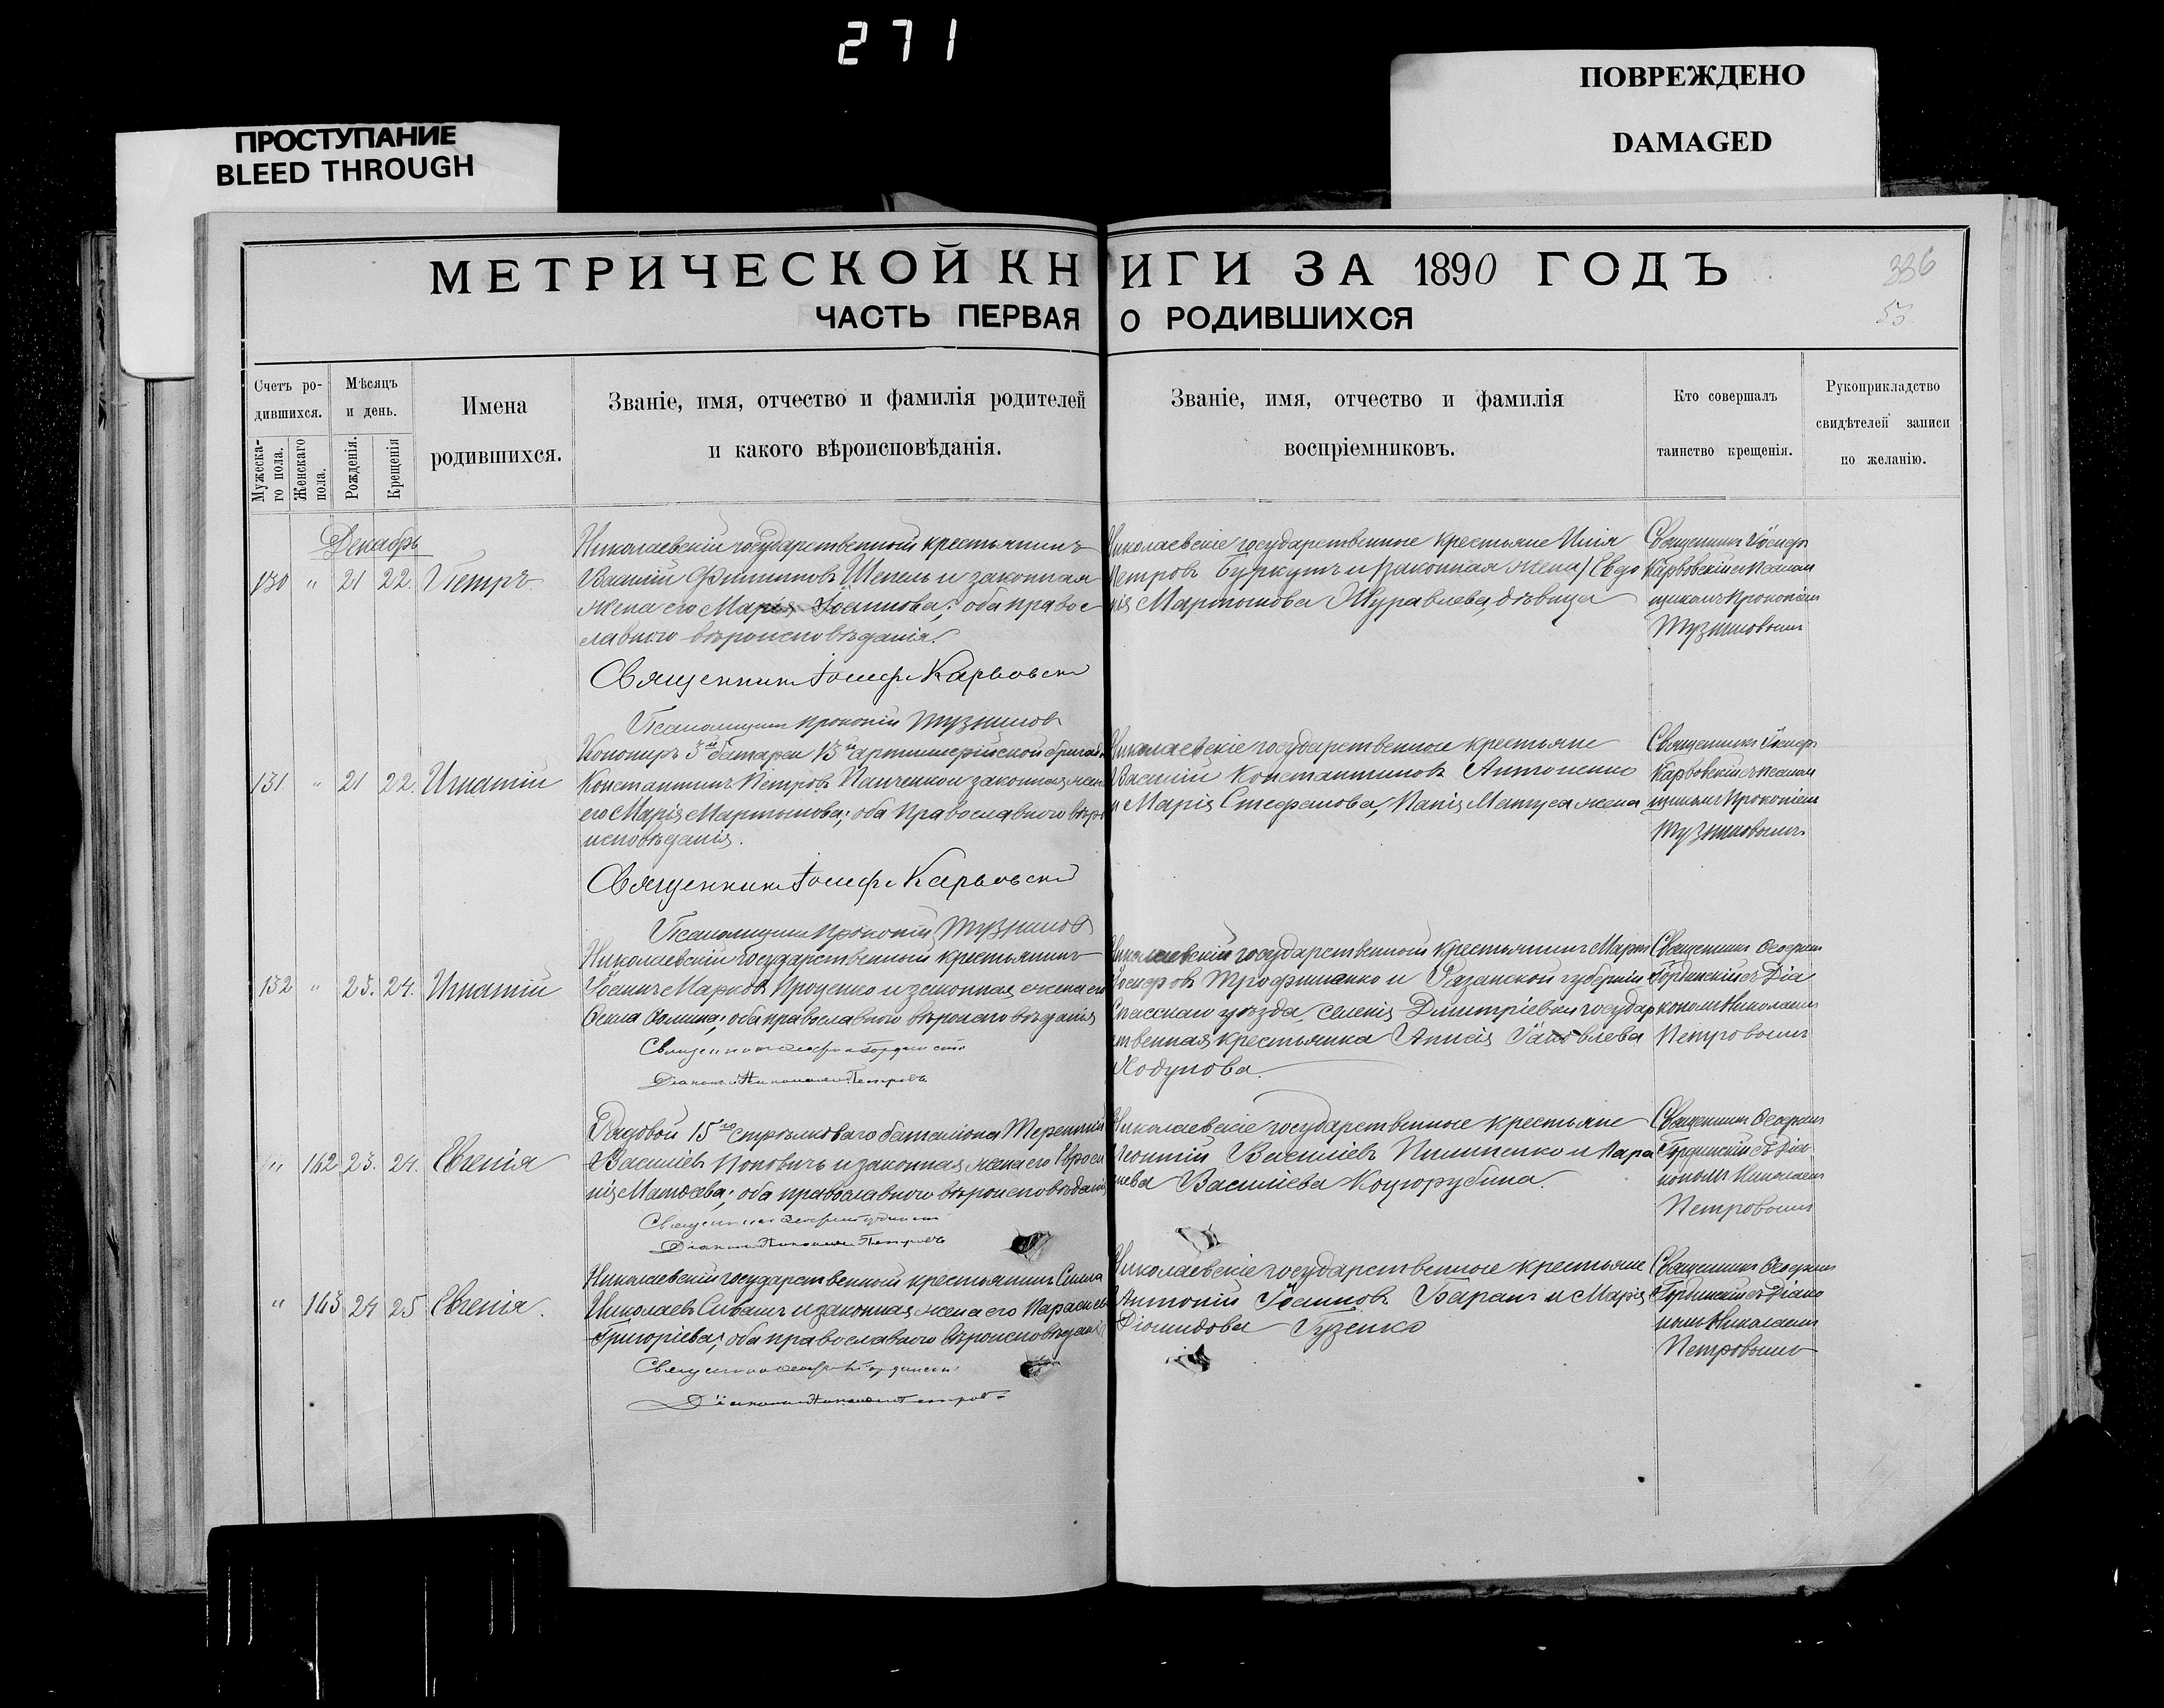 271
ПРОСТУПАНИЕ
BLEED THROUGH
ПОВРЕЖДЕНО
DAMAGED
МЕТРИЧЕСКОЙ КНИГИ ЗА 1890 ГОДЪ
336
ЧАСТЬ ПЕРВАЯ О РОДИВШИХСЯ
53
Счетъ ро-
дившихся.
Мужеска-
го пола.
Женскаго
пола.
Мѣсяцъ
и день.
Рожденія.
Крещенія
Имена
родившихся.
Званіе, имя, отчество и фамилія родителей
и какого вѣроисповѣданія.
Званіе, имя, отчество и фамилія
воспріемниковъ.
Кто совершалъ
таинство крещенія.
Рукоприкладство
свидѣтелей записи
по желанію.
Декабрь
130 " 21 22. Петръ
Николаевскій государственный крестьянинъ
Василій Филиповъ Шепель и законная
жена его Марія Іоаннова; оба правос
лавного вѣроисповѣданія.
Священникъ Іосифъ Карвовскі
Псаломщикъ Прокопій
Николаевскіе государственные крестьяне Илія
Петровъ Буркутъ и законная жена
нія Мартынова Журавлева, дѣвица
Священникъ Іосифъ
Карвовскій съ псалом
щикомъ Прокопіемъ
131. " 21 22. Игнатій
Канониръ 3й батареи 13й артиллерійской бригады
Константинъ Петровъ Панченко и законная жена
его Марія Мартынова; оба православного вѣро
исповѣданія.
Священникъ Іосифъ Карвовскі
Псаломщикъ Прокопій
Николаевскіе государственные крестьяне
Василій Константиновъ Антоненко
и Марія Стефанова, жена
Священникъ Іосифъ
Карвовскій съ псалом
щикомъ Прокопіемъ
132 " 23. 24. Игнатій
Николаевскій государственный крестьянинъ
Іоаннъ Марковъ Проценко и законная жена его
Ѳекла; оба православного вѣроисповѣданія
Священникъ
Діаконъ Николай Петровъ
Николаевскій государственный крестьянинъ
Іосифовъ Трофименко и Казанской губерніи
Спасскаго уѣзда, селенія Дмитріевки государ
ственная крестьянка Анисія Іаковлева
Ходунова.
Священникъ
съ Діа
кономъ Николаемъ
Петровымъ
" 142 23. 24. Евгенія
Рядовой 15го стрѣлковаго баталіона Терентій
Василіевъ Поповичъ и законная жена его Евроси
нія Матѳеева; оба православного вѣроисповѣданія
Священникъ
Діаконъ Николай Петровъ
Николаевскіе государственные крестьяне
Леонтій Василіевъ Пилипенко и Пара
Василіева Коцюрубина.
Священникъ
съ Діа
кономъ Николаемъ
Петровымъ
" 143 24 25 Евгенія.
Николаевскій государственный крестьянинъ
Николаевъ Сивашъ и законная жена его Параскева
Григоріева; оба православного вѣроисповѣданія
Священникъ
Діаконъ Николай Петровъ
Николаевскіе государственные крестьяне
Антоній Іоанновъ Баранъ и Марія
Діомидова Гузенко
Священникъ
съ Діако
номъ Николаемъ
Петровымъ